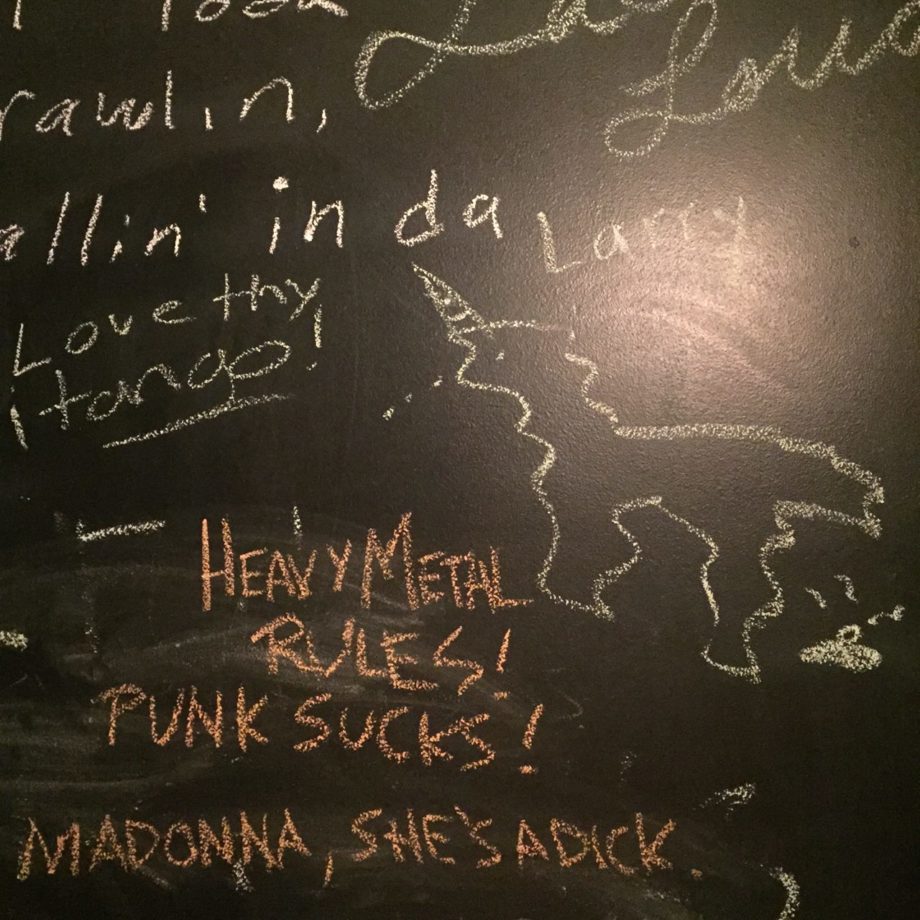 rawlin,
allin' in da
Larry
Love thy
tango!
HEAVY METAL
RULES!
PUNK SUCKS!
MADONNA, SHE'S A DICK.